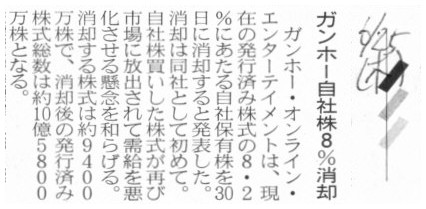 ガンホー自社株8%消却
ガンホー・オンライン・
エンターテイメントは、現
在の発行済み株式の8・2
%にあたる自社保有株を30
日に消却すると発表した。
消却は同社として初めて。
自社株買いした株式が再び
市場に放出されて需給を悪
化させる懸念を和らげる。
消却する株式は約9400
万株で、消却後の発行済み
株式総数は約10億5800
万株となる。